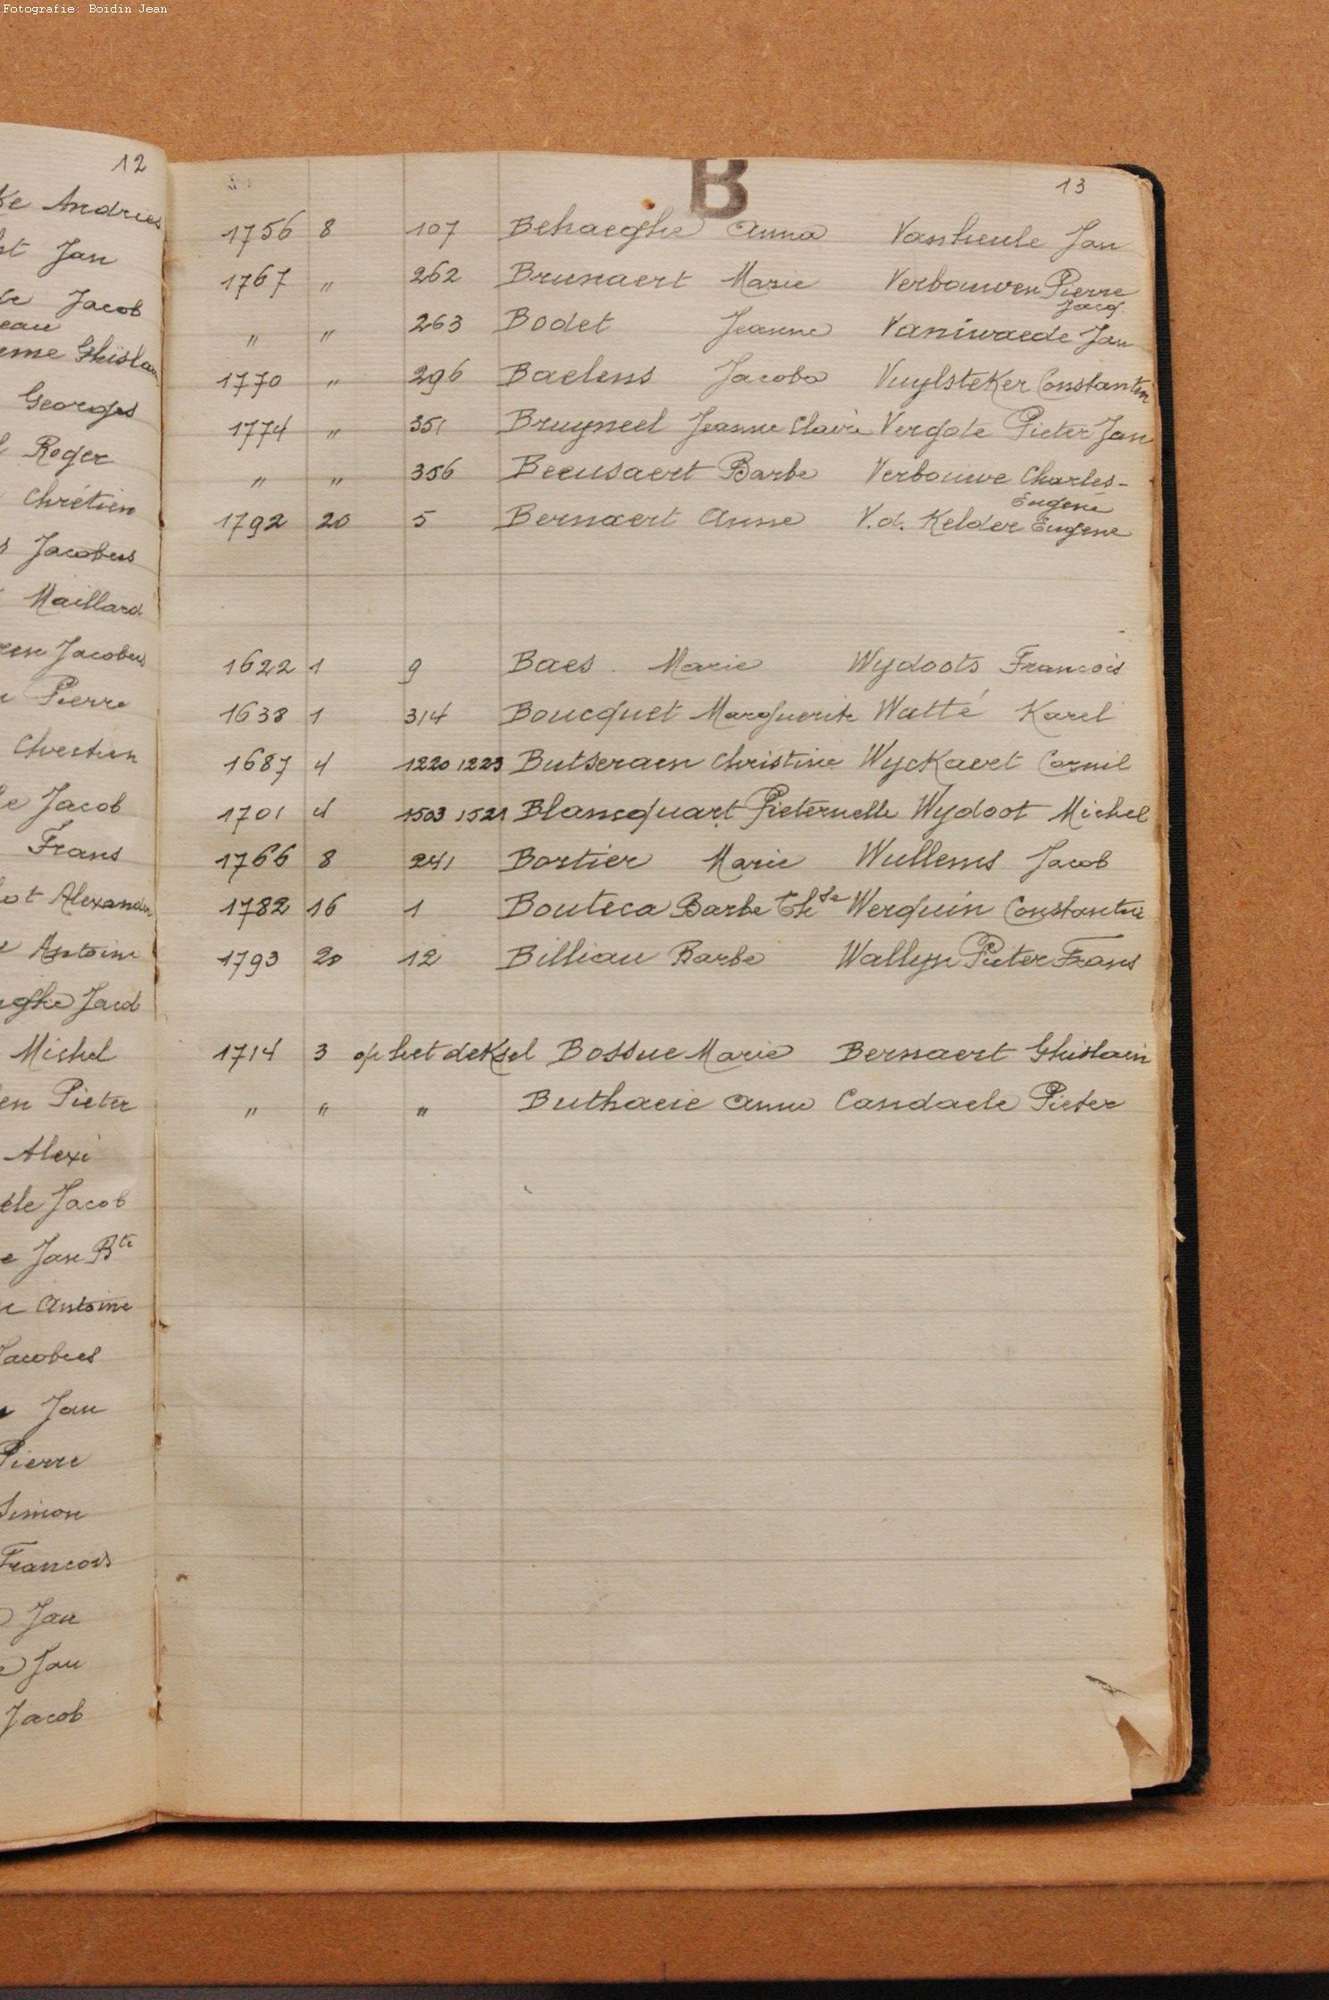 Fotografie: Boidin Jean
12
Andries
Jan
Jacob
Ghislain
Georges
Roger
Chrétien
Jacobus
Maillard
Jacobus
Pierre
Chrestien
Jacob
Frans
Alexander
Antoine
Michel
Pieter
Alexi
Jacob
Jan Bte
Antoine
Jacobus
Jan
Pierre
Simon
Francois
Jan
Jan
Jacob
B
13
1756 8 107 Behaeghe Anna Vanheule Jan
1767 " 262 Brunaert Marie Verbouwen Pierre
Jacq
" " 263 Bodet Jeanne Vaniwaede Jan
1770 " 296 Baelens Jacoba Vuylsteker Constantin
1774 " 351 Bruyneel Jeanne Claire Vergote Pieter Jan
" " 356 Beeusaert Barbe Verbouwe Charles-
Eugene
1792 20 5 Bernaert Anne V.d. Kelder Eugene
1622 1 9 Baes Marie Wydoots Francois
1638 1 314 Boucquet Marguerite Watté Karel
1687 4 1220 1223 Butseraen Christine Wyckaert Cornil
1701 4 1503 1521 Blancquart Pieternelle Wydoot Michel
1766 8 241 Bortier Marie Wullems Jacob
1782 16 1 Bouteca Barbe Thse Werquin Constantin
1793 20 12 Billiau Barbe Wallyn Pieter Frans
1714 3 op het deksel Bossue Marie Bernaert Ghislain
" " " Buthacie Anne Candaele Pieter